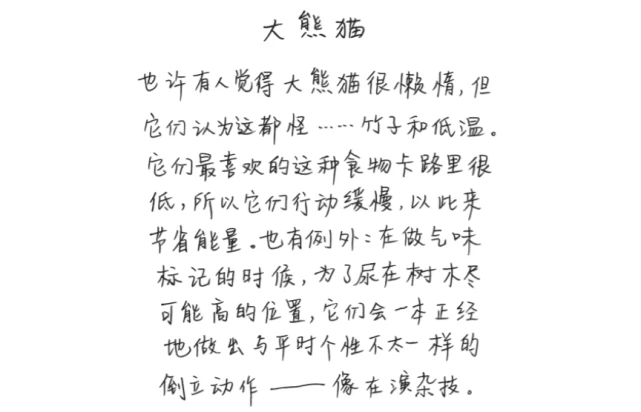 大熊猫
也许有人觉得大熊猫很懒惰,但
它们认为这都怪……竹子和低温。
它们最喜欢的这种食物卡路里很
低,所以它们行动缓慢,以此来
节省能量。也有例外:在做气味
标记的时候,为了尿在树木尽
可能高的位置,它们会一本正经
地做出与平时个性不太一样的
倒立动作——像在演杂技。